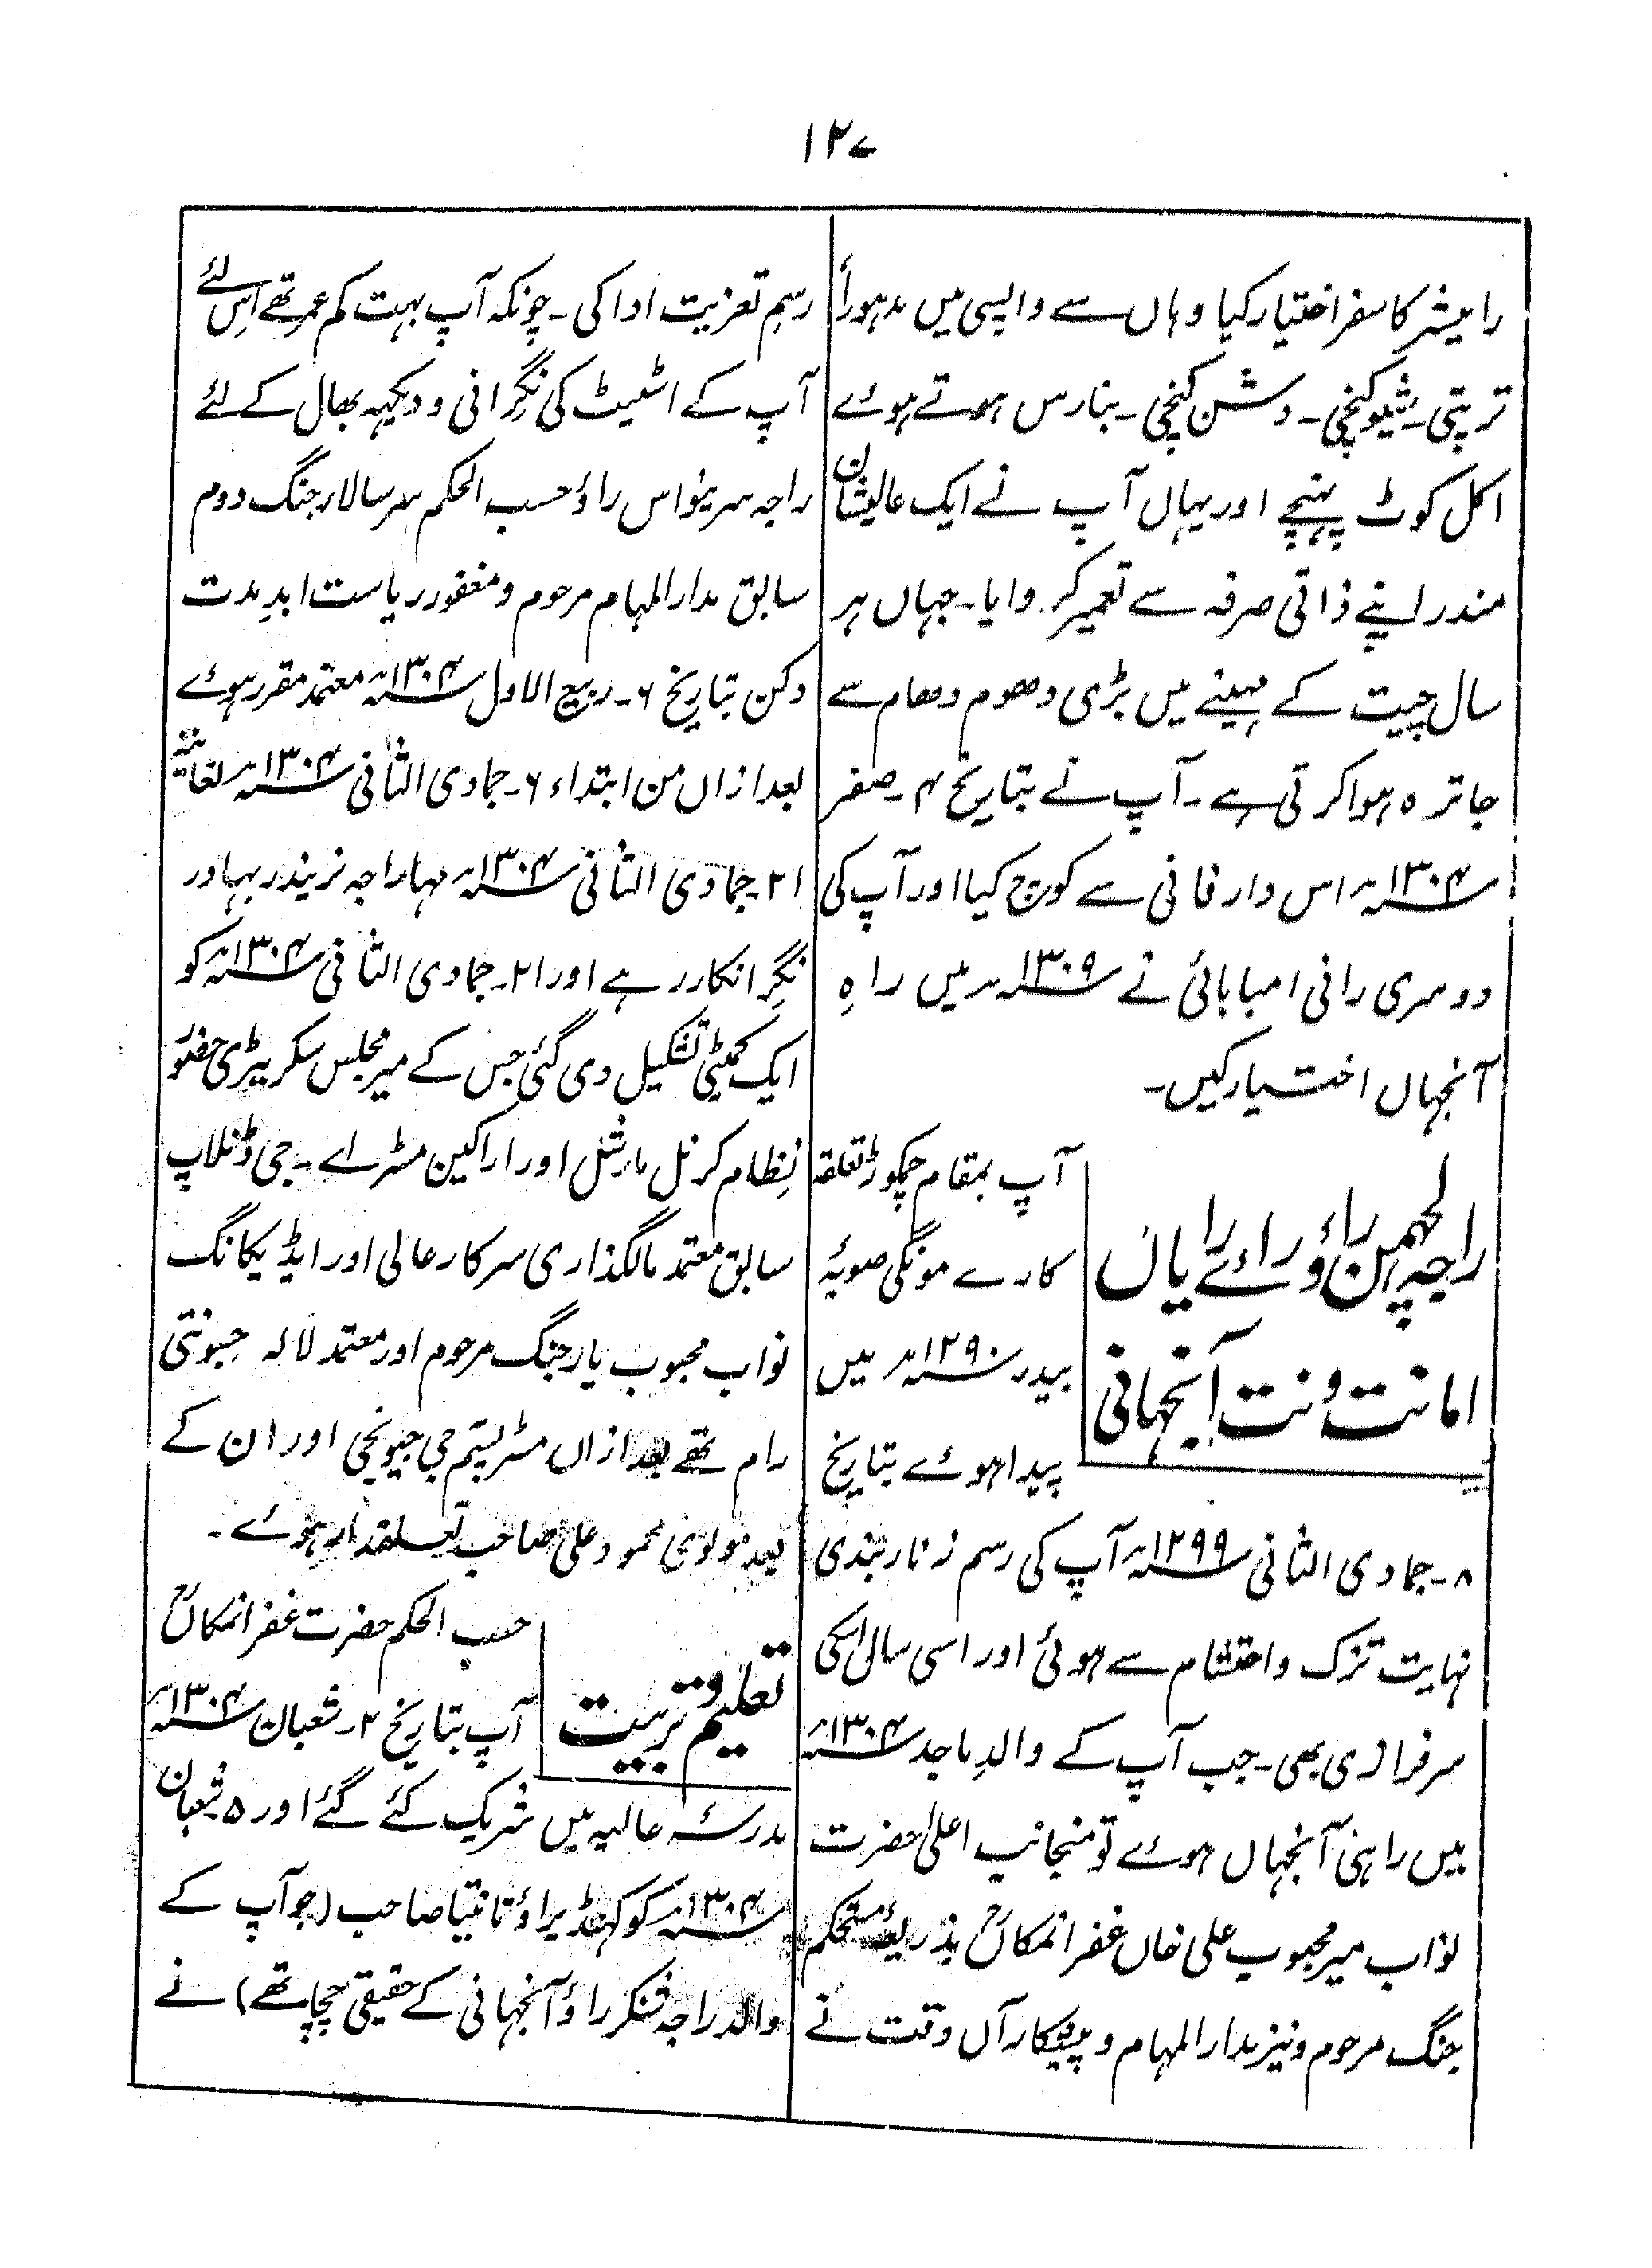 ۱۲۷
رامیشر کا سفر اختیار کیا وہاں سے واپسی میں مدہورا
ترپتی۔ شیوکنچی۔ وشن کنچی۔ بنارس ہوتے ہوئے
اکل کوٹ پہنچے اور یہاں آپ نے ایک عالیشان
مندر اپنے ذاتی صرفہ سے تعمیر کروایا۔ جہاں ہر
سال چیت کے مہینے میں بڑی دھوم دھام سے
جاترہ ہوا کرتی ہے۔ آپ نے بتاریخ ۴۔ صفر
۱۳۰۴؁ھ اس دار فانی سے کوچ کیا اور آپ کی
دوسری رانی امبا بائی نے ۱۳۰۹؁ھ میں راہِ
آنجہاں اختیار کیں۔
راجہ لچھمن راؤ رائے رایاں
امانت ونت آنجہانی
آپ بمقام چمکوڑ تعلقہ
کارے مونگی صوبۂ
بیدر ۱۲۹۰؁ھ میں
پیدا ہوئے بتاریخ
۸۔ جمادی الثانی ۱۲۹۹؁ھ آپ کی رسم زنار بندی
نہایت تزک و احتشام سے ہوئی اور اسی سال اسکی
سرفرازی بھی۔ جب آپ کے والدِ ماجد ۱۳۰۴؁ھ
میں راہئی آنجہاں ہوئے تو منجانب اعلیٰ حضرت
نواب میر محبوب علی خاں غفرانمکاںؒ بذریعۂ مستحکم
جنگ مرحوم و نیز مدارالمہام و پیشکار آں وقت نے
رسم تعزیت ادا کی۔ چونکہ آپ بہت کم عمر تھے اس لئے
آپ کے اسٹیٹ کی نگرانی و دیکہہ بھال کے لئے
راجہ سرینواس راؤ حسب الحکم سر سالار جنگ دوم
سابق مدارالمہام مرحوم و مغفور ریاست ابد مدت
دکن بتاریخ ۶۔ ربیع الاول ۱۳۰۴؁ھ معتمد مقرر ہوئے
بعد ازاں من ابتداء ۶۔ جمادی الثانی ۱۳۰۴؁ھ لغایتہ
۲۱۔ جمادی الثانی ۱۳۰۴؁ھ مہاراجہ نریندر بہادر
نگرانکار رہے اور ۲۱۔ جمادی الثانی ۱۳۰۴؁ھ کو
ایک کمیٹی تشکیل دی گئی جس کے میر مجلس سکریٹری حضور
نظام کرنل مارشل اور اراکین مسٹر اے۔ جی ڈنلاپ
سابق معتمد مالگذاری سرکار عالی اور ایڈیکانگ
نواب محبوب یار جنگ مرحوم اور معتمد لالہ جیونتی
رام تھے بعد ازاں مسٹر رستم جی جیونجی اور ان کے
بعد مولوی محمود علی صاحب تعلقدار ہوئے۔
تعلیم و تربیت
حسب الحکم حضرت غفرانمکاںؒ
آپ بتاریخ ۲۔ شعبان ۱۳۰۴؁ھ
مدرسۂ عالیہ میں شریک کئے گئے اور ۵۔ شعبان
۱۳۰۴؁ھ کو کہنڈیراؤ تانتیا صاحب (جو آپ کے
والد راجہ شنکر راؤ آنجہانی کے حقیقی چچا تھے) نے